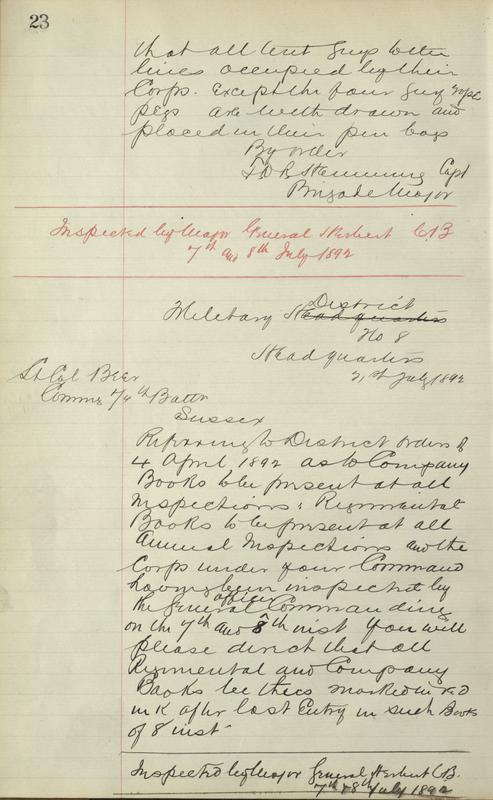 23
that all tent guys to the
lines occupied by their
Corps. Except the four guy rope
pegs are withdrawn and
placed in their pin bags
By order
Capt
Brigade Major
Inspected by Major General Herbert C.B
7th and 8th July 1892
Military Headquarters District
No 8
Headquarters
21st July 1892
Lt Col Beer
Comm'g 74th Battn
Sussex
Referring to District orders of
4 April 1892 as to Company
Books to be present at all
Inspections & Regimental
Books to be present at all
Annual Inspections and the
Corps under your Command
having been inspected by
the General officer Commanding
on the 7th and 8th inst You will
please direct that all
Regimental and Company
Books be thus marked in red
ink after last Entry in such Books
of 8 inst
Inspected by Major General Herbert C.B.
7th & 8th July 1892